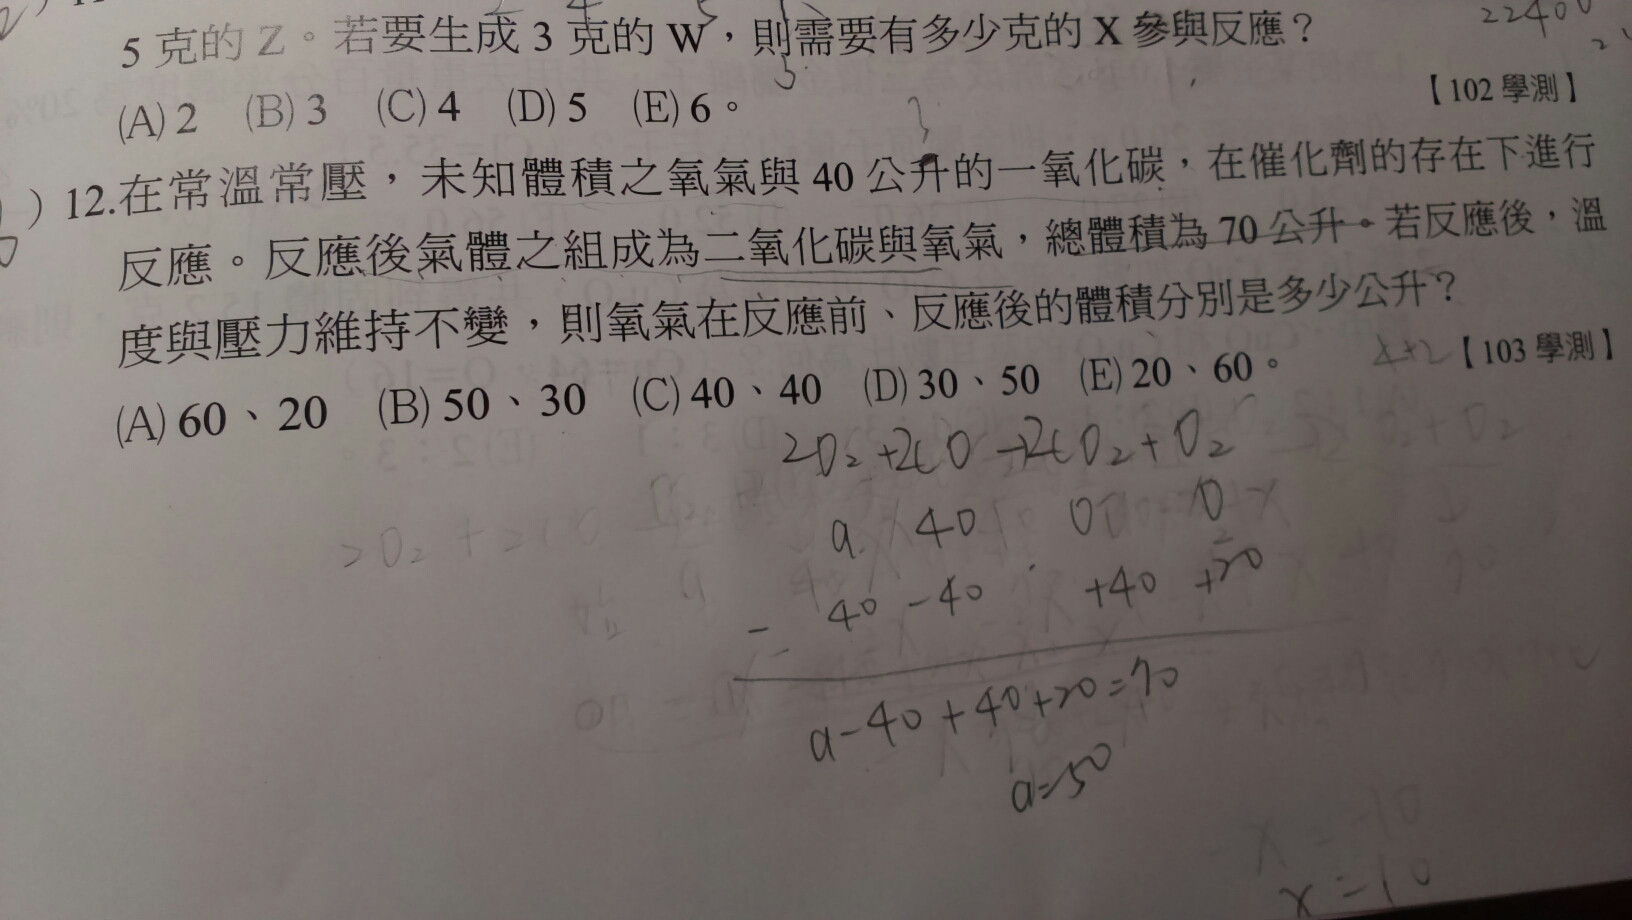 22400
5 克的 Z。若要生成 3 克的 W，則需要有多少克的 X 參與反應？
(A) 2 (B) 3 (C) 4 (D) 5 (E) 6。
【102 學測】
) 12.在常溫常壓，未知體積之氧氣與 40 公升的一氧化碳，在催化劑的存在下進行
反應。反應後氣體之組成為二氧化碳與氧氣，總體積為 70 公升。若反應後，溫
度與壓力維持不變，則氧氣在反應前、反應後的體積分別是多少公升？
【103 學測】
(A) 60、20 (B) 50、30 (C) 40、40 (D) 30、50 (E) 20、60。
2O₂+2CO→2CO₂+O₂
a 40 0 0
- 40 -40 +40 +20
a-40+40+20=70
a=50
x=10